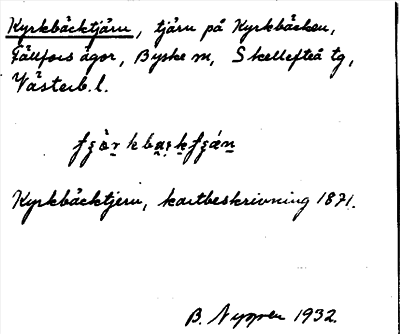 Kyrkbäcktjärn, tjärn på Kyrkbäcken,
Fällfors ägor, Byske sn, Skellefteå tg,
Västerb. l.
Kyrkbäcktjern, kartbeskrivning 1871.
B. Nyman 1932.